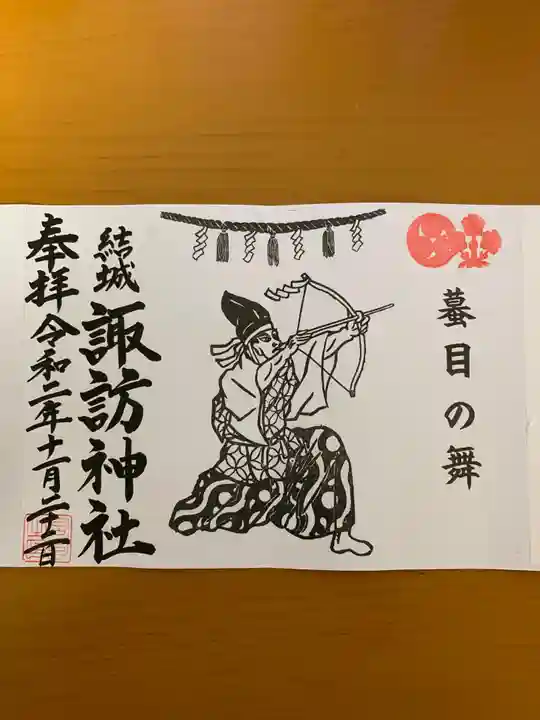 蟇目の舞
結城
諏訪神社
奉拝令和二年十一月二十二日